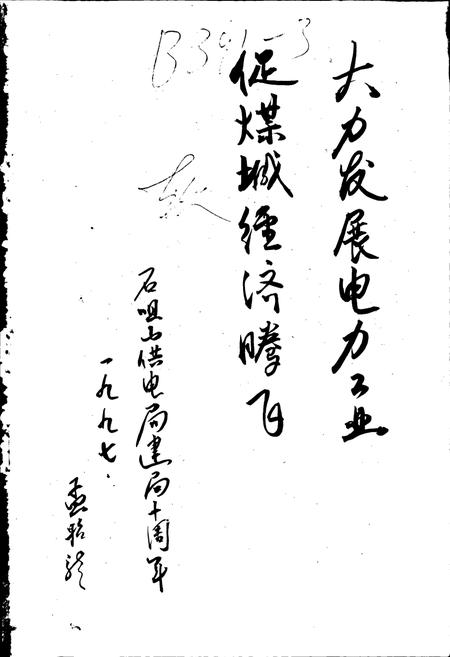 大力发展电力工业
促煤城经济腾飞
石咀山供电局建局十周年
一九九七.
B391-3